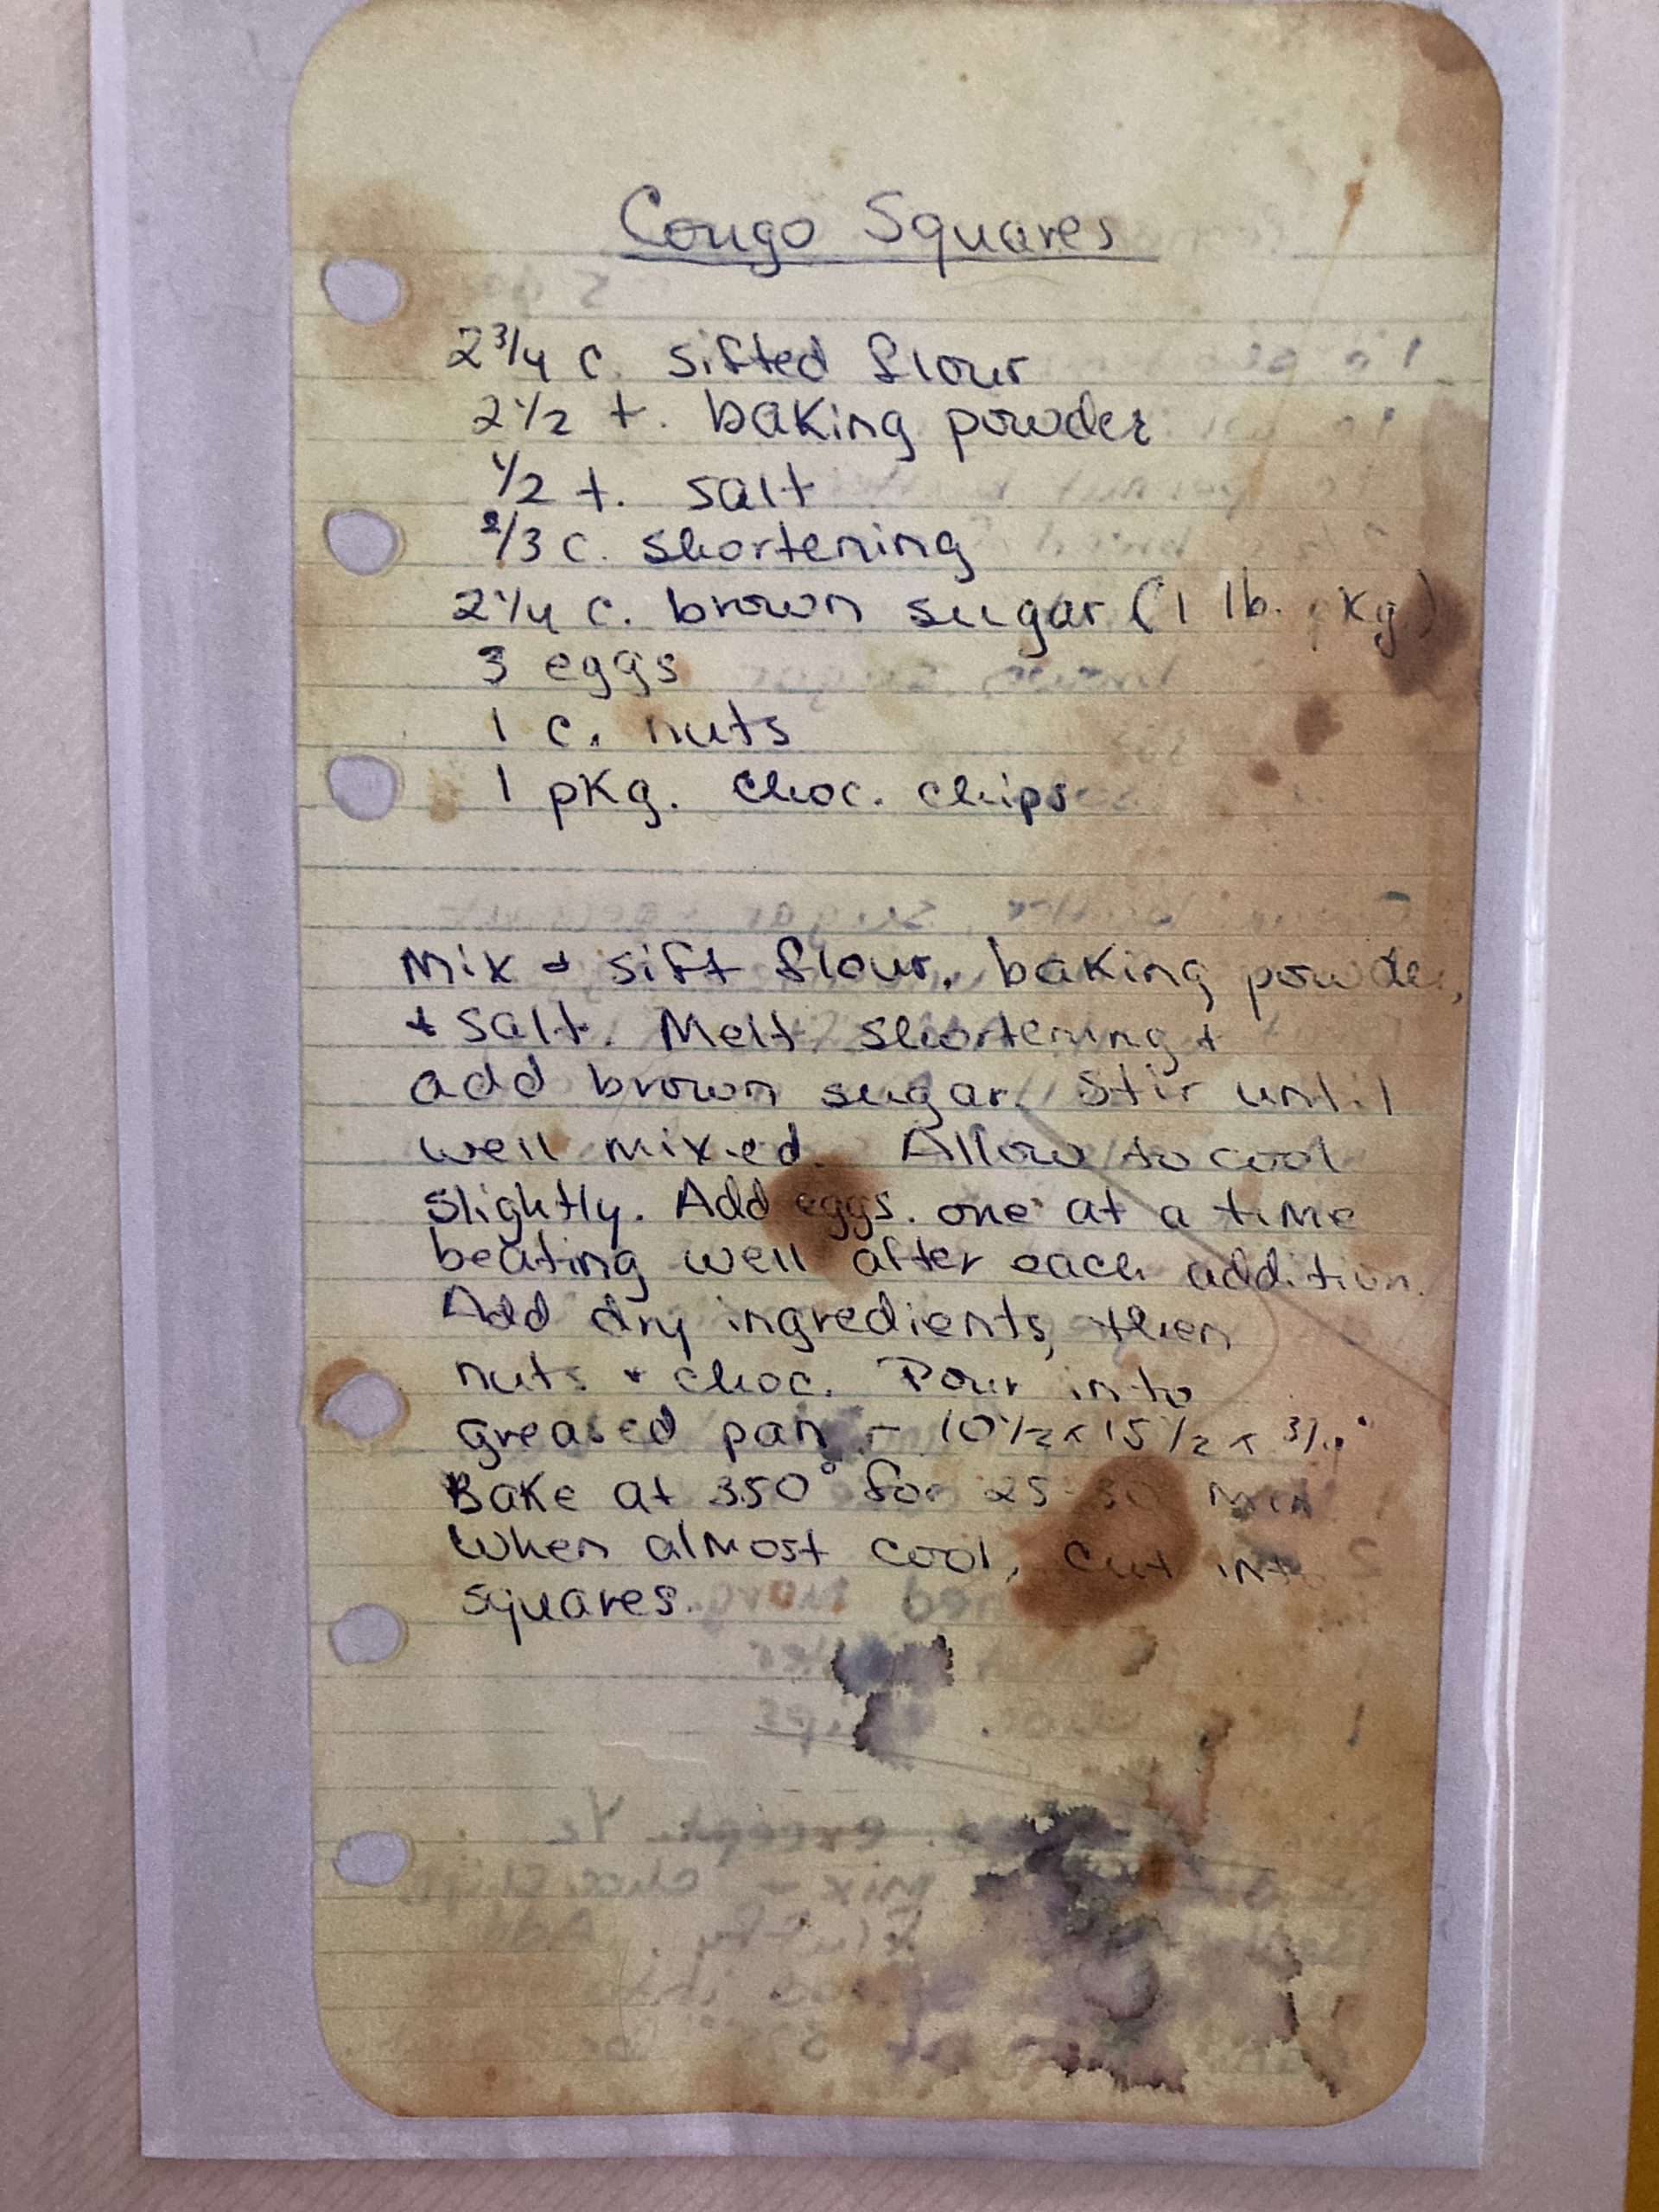 Congo Squares
2 3/4 c. sifted flour
2 1/2 t. baking powder
1/2 t. salt
2/3 c. shortening
2 1/4 c. brown sugar (1 lb. pkg)
3 eggs
1 c. nuts
1 pkg. choc. chips
Mix + sift flour, baking powder,
+ salt. Melt shortening +
add brown sugar. Stir until
well mixed. Allow to cool
slightly. Add eggs. one at a time
beating well after each addition.
Add dry ingredients, then
nuts + choc. Pour into
greased pan - 10 1/2 x 15 1/2 x 3/4"
Bake at 350° for 25-30 min
When almost cool, cut into
squares.